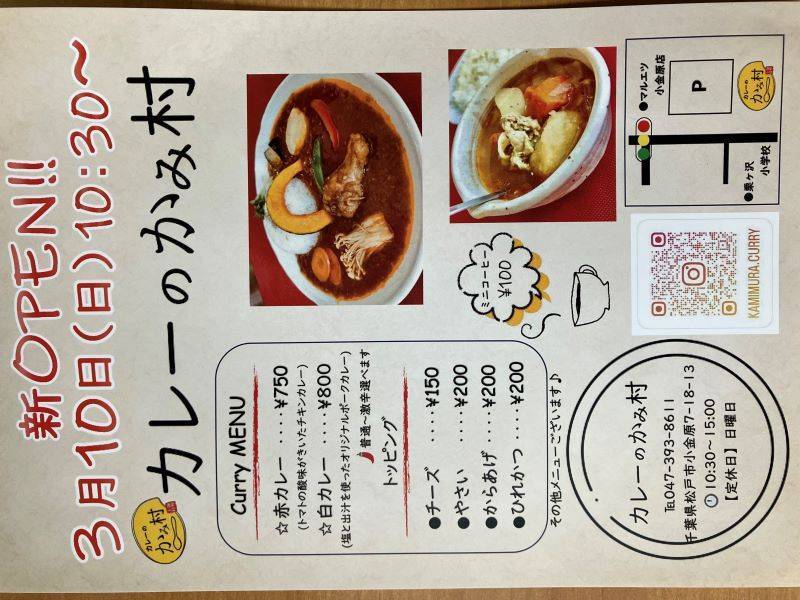 新OPEN!!
3月10日(日)10:30～
カレーの
かみ村
カレーのかみ村
Curry MENU
☆赤カレー ････¥750
(トマトの酸味がきいたチキンカレー)
☆白カレー ････¥800
(塩と出汁を使ったオリジナルポークカレー)
普通～激辛選べます
トッピング
●チーズ ････¥150
●やさい ････¥200
●からあげ ････¥200
●ひれかつ ････¥200
その他メニューございます♪
ミニコーヒー
¥100
●マルエツ
小金原店
P
カレーの
かみ村
●栗ヶ沢
小学校
KAMIMURA.CURRY
カレーのかみ村
℡047-393-8611
千葉県松戸市小金原7-18-13
10:30～15:00
【定休日】日曜日